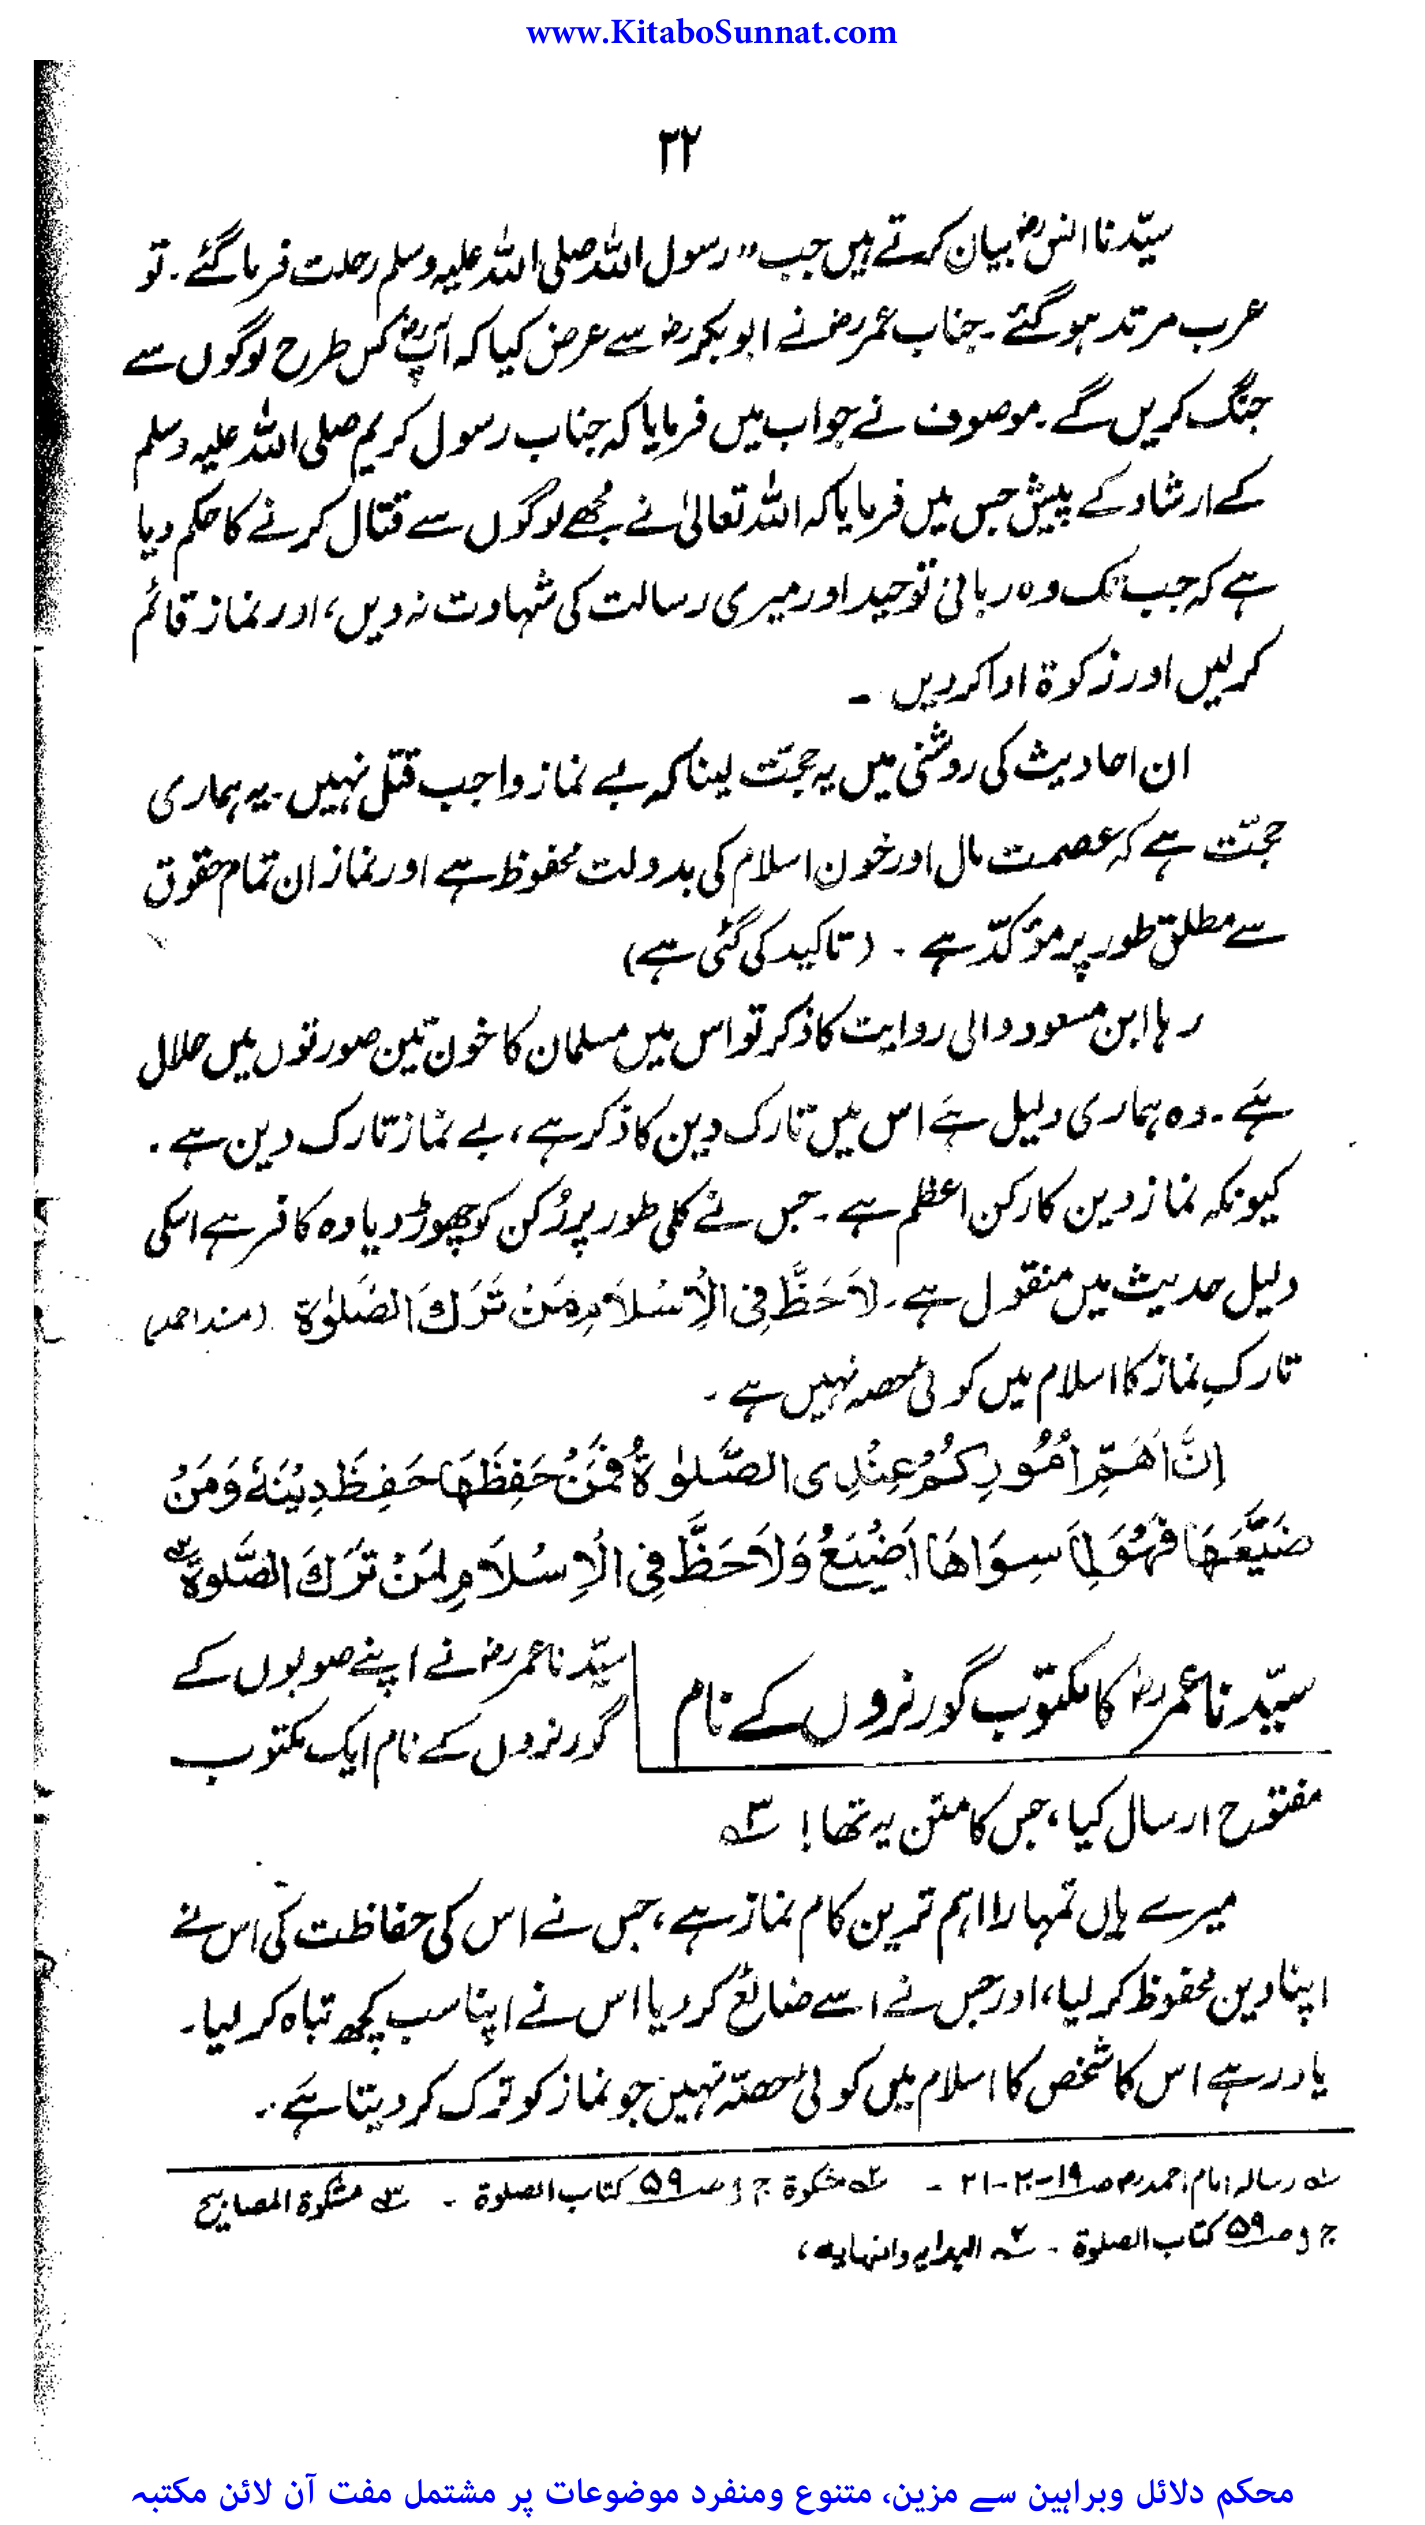 www.KitaboSunnat.com
۲۲
سیّدنا انس رض بیان کرتے ہیں جب " رسول اللہ صلی اللہ علیہ وسلم رحلت فرما گئے۔ تو
عرب مرتد ہو گئے ۔ جناب عمر رض نے ابوبکر رض سے عرض کیا کہ آپ رض کس طرح لوگوں سے
جنگ کریں گے ۔ موصوف نے جواب میں فرمایا کہ جناب رسول کریم صلی اللہ علیہ وسلم
کے ارشاد کے پیش جس میں فرمایا کہ اللہ تعالیٰ نے مجھے لوگوں سے قتال کرنے کا حکم دیا
ہے کہ جب تک وہ ربانی توحید اور میری رسالت کی شہادت نہ دیں، اور نماز قائم
کرلیں اور زکوۃ ادا کردیں ۔
ان احادیث کی روشنی میں یہ حجّت لینا کہ بے نماز واجب قتل نہیں ۔ یہ ہماری
حجّت ہے کہ عصمت مال اور خون اسلام کی بدولت محفوظ ہے اور نماز ان تمام حقوق
سے مطلق طور پر مؤکدّ ہے ۔ (تاکید کی گئی ہے)
رہا ابن مسعود والی روایت کا ذکر تو اس میں مسلمان کا خون تین صورتوں میں حلال
ہے ۔ وہ ہماری دلیل ہے اس میں تارک دین کا ذکر ہے ، بے نماز تارک دین ہے ۔
کیونکہ نماز دین کا رکن اعظم ہے ۔ جس نے کلی طور پر رُکن کو چھوڑ دیا وہ کافر ہے اسکی
دلیل حدیث میں منقول ہے ۔ لَاحَظَّ فِی الْاِسْلَامِ مَنْ تَرَكَ الصَّلٰوۃ (مسند احمد)
تارکِ نماز کا اسلام میں کوئی حصہ نہیں ہے ۔
اِنَّ اَهَمِّ اُمُوْرِكُمْ عِنْدِی الصَّلٰوةُ فَمَنْ حَفِظَهَا حَفِظَ دِیْنَهٗ وَمَنْ
ضَیَّعَهَا فَهُوَ لِمَا سِوَاهَا اَضْیَعُ وَلَاحَظَّ فِی الْاِسْلَامِ لِمَنْ تَرَكَ الصَّلٰوةَ ۲
سیّدنا عمر رض کا مکتوب گورنروں کے نام
سیّدنا عمر رض نے اپنے صوبوں کے
گورنروں کے نام ایک مکتوب
مفتوح ارسال کیا، جس کا متن یہ تھا ! ۳
میرے ہاں تمہارا اہم ترین کام نماز ہے ، جس نے اس کی حفاظت کی اس نے
اپنا دین محفوظ کر لیا، اور جس نے اسے ضائع کر دیا اس نے اپنا سب کچھ تباہ کر لیا۔
یاد رہے اس کا شخص کا اسلام میں کوئی حصّہ نہیں جو نماز کو ترک کر دیتا ہے ۔
رسالہ امام احمد رح ص ۱۹-۲۰-۲۱ ۔ ۲ مشکوۃ ج ۱ ص ۵۹ کتاب الصلوۃ ۔ ۳ مشکوۃ المصابیح
ج ۱ ص ۵۹ کتاب الصلوۃ ۔ ۴ البدایہ والنہایہ ،
محکم دلائل وبراہین سے مزین، متنوع ومنفرد موضوعات پر مشتمل مفت آن لائن مکتبہ